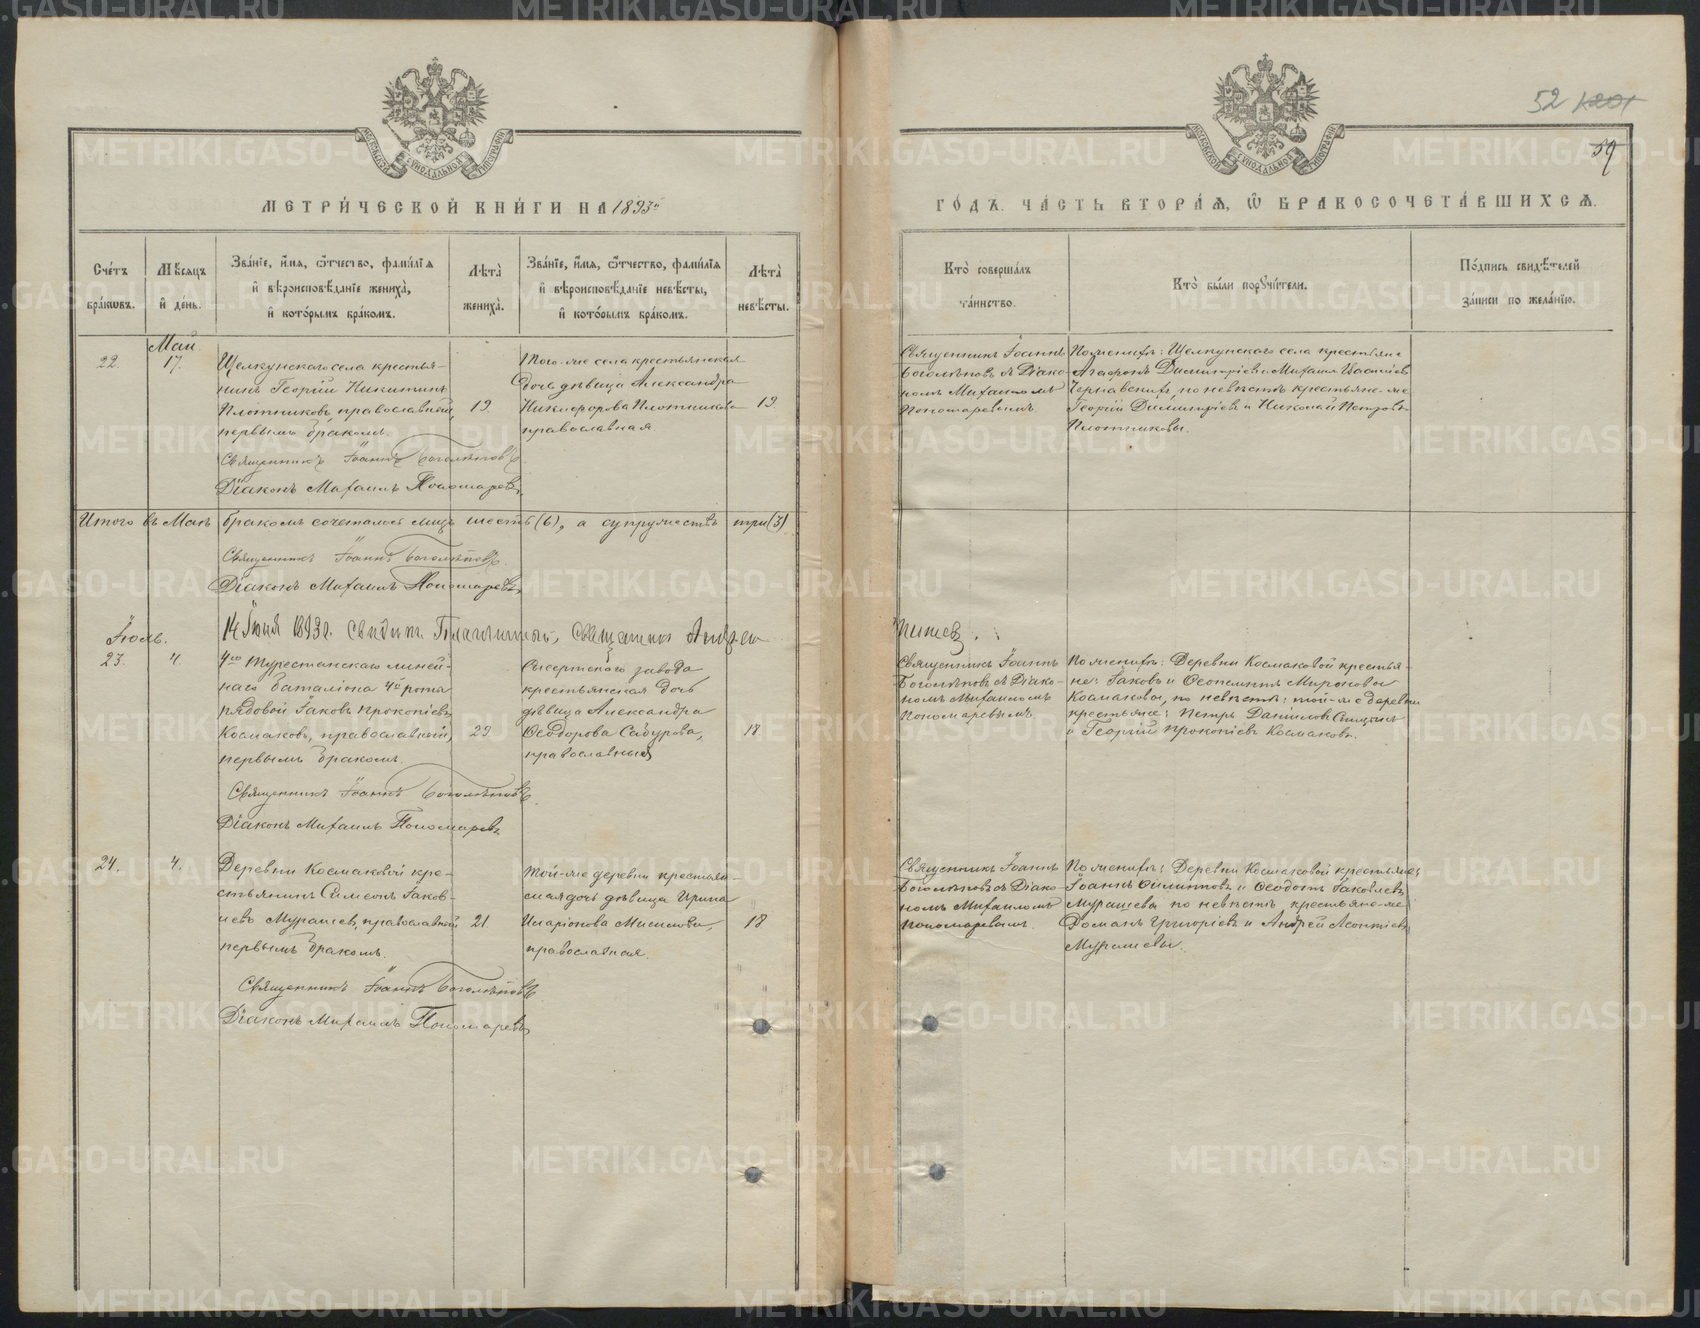 52 1201
59
МЕТРИЧЕСКОЙ КНИГИ НА 1893й
ГОДЪ. ЧАСТЬ ВТОРАЯ, Ѿ БРАКОСОЧЕТАВШИХСЯ.
Счетъ браковъ.
Мѣсяцъ и день.
Званіе, имя, ѿтчество, фамилія
и вѣроисповѣданіе жениха,
и которымъ бракомъ.
Лѣта жениха.
Званіе, имя, ѿтчество, фамилія
и вѣроисповѣданіе невѣсты,
и которымъ бракомъ.
Лѣта невѣсты.
Кто совершалъ таинство.
Кто были поручители.
Подпись свидѣтелей записи по желанію.
Май
22. 17.
Щелкунскаго села крестья-
нинъ Георгій Никитинъ
Плотниковъ, православный,
первымъ бракомъ.
19
Того-же села крестьянская
дочь дѣвица Александра
Никифорова Плотникова
православная.
19
Священникъ Іоаннъ
Боголѣповъ съ Діако-
номъ Михаиломъ
Пономаревымъ.
По женихѣ: Щелкунскаго села крестьяне
Агафонъ Димитріевъ и Михаилъ
по невѣстѣ крестьяне-же
Георгій Димитріевъ и Николай Петровъ
Плотниковы.
Священникъ Іоаннъ Боголѣповъ
Діаконъ Михаилъ Пономаревъ
Итого въ Маѣ бракомъ сочеталось лицъ шесть (6), а супружествъ три (3)
Священникъ Іоаннъ Боголѣповъ.
Діаконъ Михаилъ Пономаревъ
14 Іюня 1893 г. Свидѣт. Благочинный, Священникъ Андрей
Іюль.
23. 4.
4го Туркестанскаго линей-
наго баталіона 4й роты
рядовой Іаковъ Прокопіевъ
Космаковъ, православный,
первымъ бракомъ.
29
Сысертскаго завода
крестьянская дочь
дѣвица Александра
Ѳеодорова Сабурова,
православныя
18
Священникъ Іоаннъ
Боголѣповъ съ Діако-
номъ Михаиломъ
Пономаревымъ
По женихѣ: Деревни Космаковой крестья-
не: Іаковъ и Мироновы
Космаковы, по невѣстѣ: той-же деревни
крестьяне: Петръ Даниловъ
и Георгій Прокопіевъ Космаковъ.
Священникъ Іоаннъ Боголѣповъ
Діаконъ Михаилъ Пономаревъ
24. 4.
Деревни Космаковой кре-
стьянинъ Симеонъ Іаков-
левъ Мурашевъ, православный
первымъ бракомъ.
21
Той-же деревни крестьян-
ская дочь дѣвица Ирина
Иларіонова
православная.
18
Священникъ Іоаннъ
Боголѣповъ съ Діако-
номъ Михаиломъ
Пономаревымъ.
По женихѣ: Деревни Космаковой крестьяне
Іоаннъ Филипповъ и Ѳеодотъ Іаковлевъ
Мурашевы по невѣстѣ крестьяне-же
Григоріевъ и Андрей Леонтіевъ
Мурашевы.
Священникъ Іоаннъ Боголѣповъ
Діаконъ Михаилъ Пономаревъ
METRIKI.GASO-URAL.RU